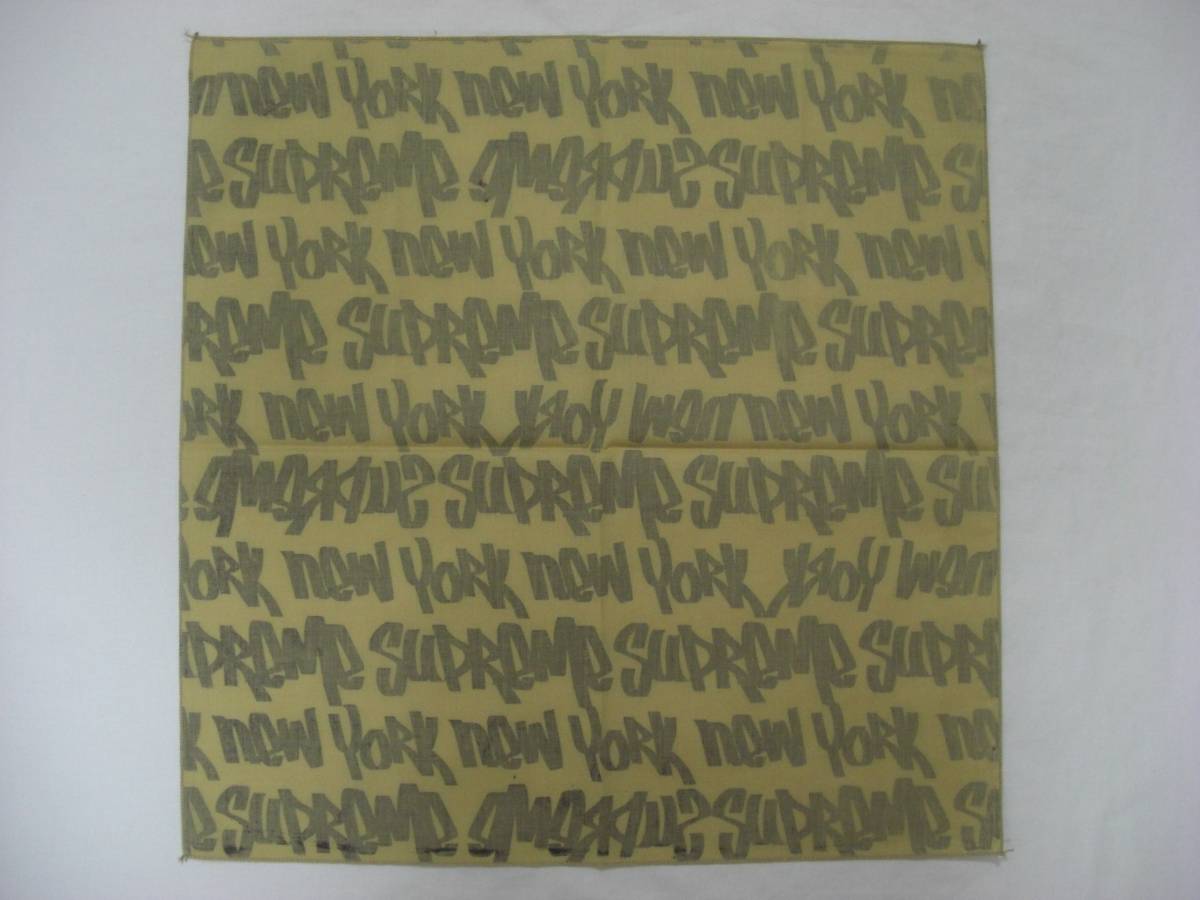 NEW YORK NEW YORK NEW YORK NE
E SUPREME SUPREME SUPREME SU
EW YORK NEW YORK NEW YORK NEW Y
REME SUPREME SUPREME SUPREM
ORK NEW YORK YORK NEW NEW YORK
SUPREME SUPREME SUPREME SU
ORK NEW YORK NEW YORK YORK NEW
PREME SUPREME SUPREME SUPRE
K NEW YORK NEW YORK NEW YORK NE
E SUPREME SUPREME SUPREME S